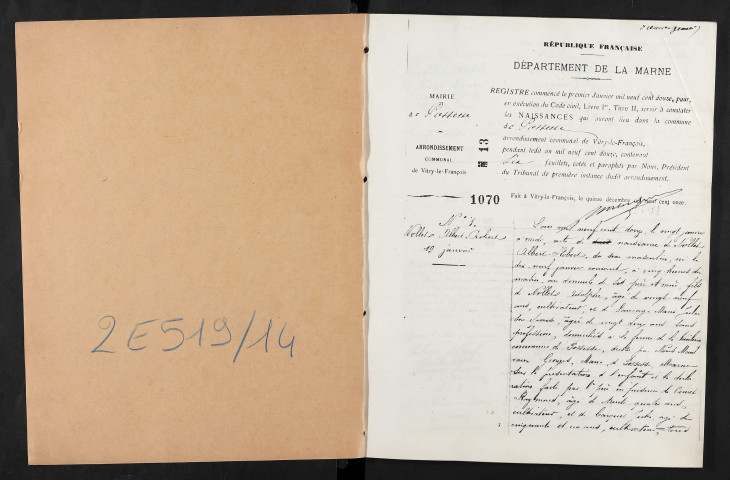 2E519/14
RÉPUBLIQUE FRANÇAISE
DÉPARTEMENT DE LA MARNE
MAIRIE
de Possesse
ARRONDISSEMENT
COMMUNAL
de Vitry-le-François
13
1070
REGISTRE commencé le premier Janvier mil neuf cent douze, pour,
en exécution du Code civil, Livre Ier, Titre II, servir à constater
les NAISSANCES qui auront lieu dans la commune
de Possesse
arrondissement communal de Vitry-le-François,
pendant ledit an mil neuf cent douze, contenant
feuillets, cotés et paraphés par Nous, Président
du Tribunal de première instance dudit arrondissement.
Fait à Vitry-le-François, le quinze décembre neuf cent onze.
N° 1.
Nollet Albert Robert
19 janvier
L'an mil neuf cent douze, le vingt janvier
à midi, acte de naissance de Nollet
Albert Robert, du sexe masculin, né le
dix neuf janvier courant, à cinq heures du
matin, au domicile de ses père et mère, fils
de Nollet Adolphe, âgé de vingt neuf
ans, cultivateur, et de Marie
âgée de vingt ans, sans
profession, domiciliés à la ferme de la
commune de Possesse, dressé par Nous
Georges, Maire de Possesse, Marne
sur la présentation de l'enfant et la décla
ration faite par le père en présence de
Raymond, âgé de trente quatre ans,
cultivateur, et de âgé de
cinquante et un ans, cultivateur, tous